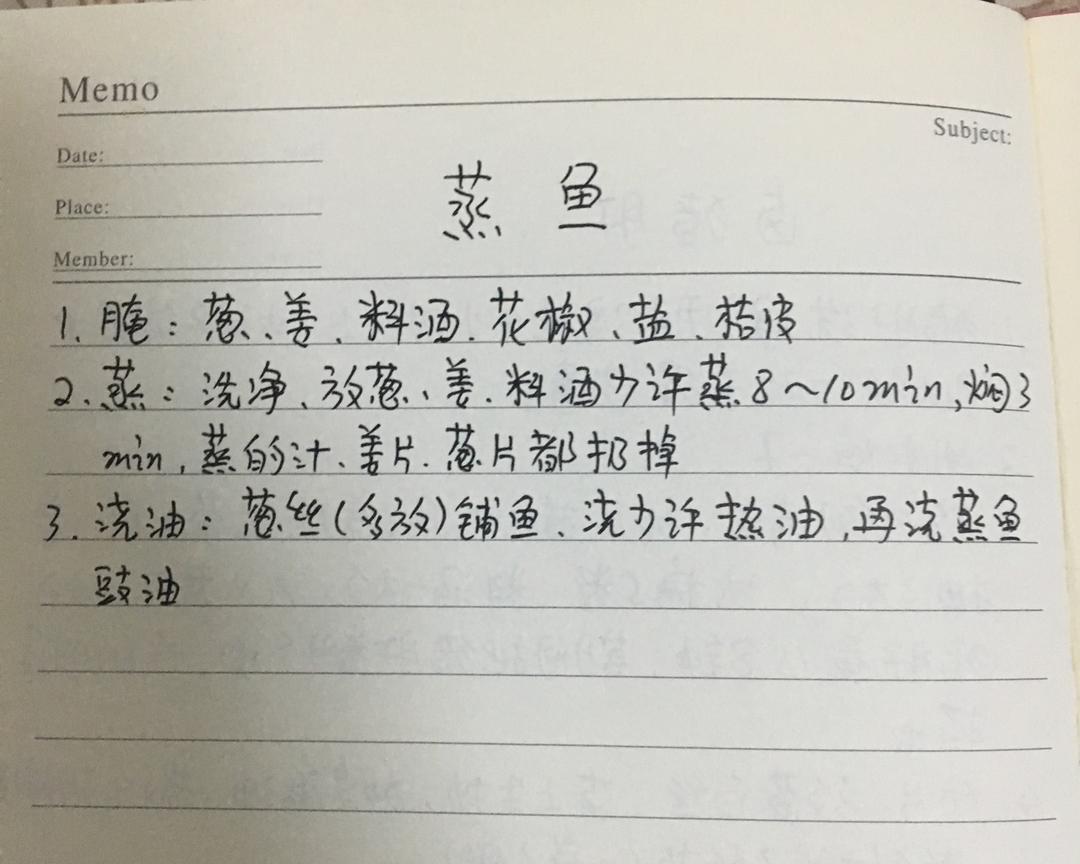 Memo
Subject:
Date:
Place:
Member:
蒸鱼
1. 腌：葱、姜、料酒、花椒、盐、桔皮
2. 蒸：洗净、放葱、姜、料酒少许蒸8~10min，焖3
min，蒸的汁、姜片、葱片都扔掉
3. 浇油：葱丝(多放)铺鱼、浇少许热油，再浇蒸鱼
豉油